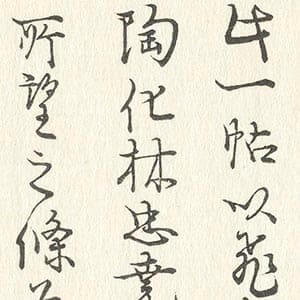 此一帖以飛
陶化林忠
所望之條